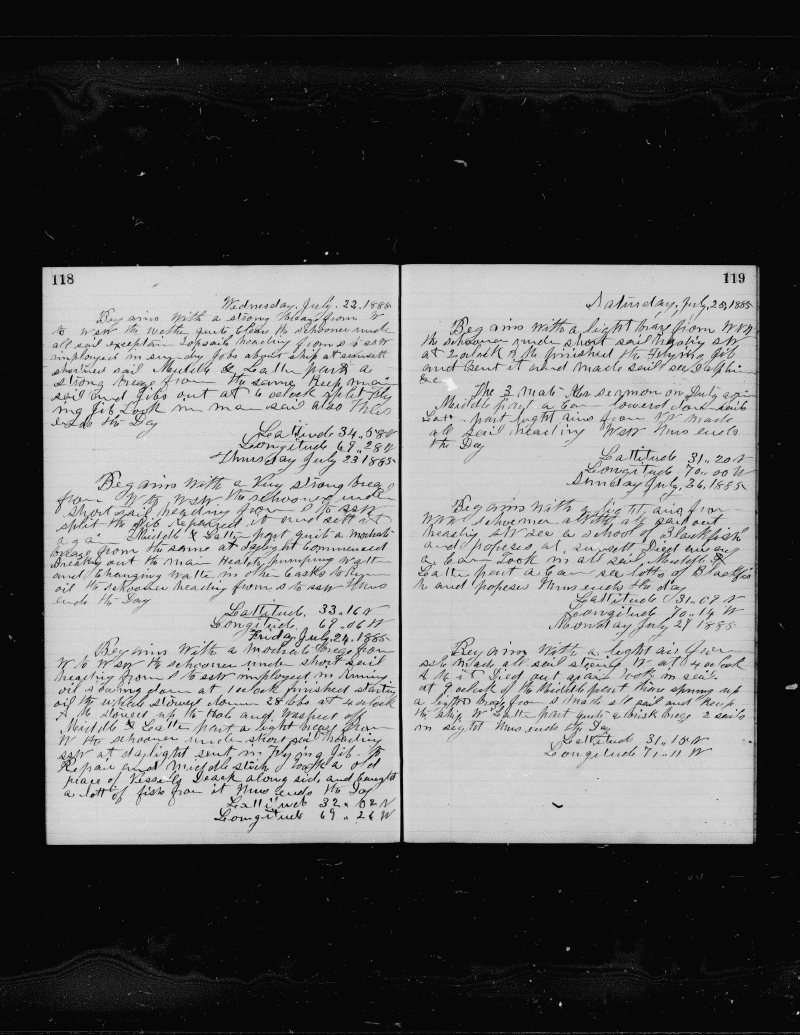 118
Wednesday, July, 22, 1885
Begains With a strong breaze from W
to WSW the wether quite cleare the schooner under
all sail exceptain topsails heading from S to SSW
employed in sundry Jobs about ship at sunsett
shortned sail Middle & Latter part a
strong breaze from the same Keep main
sail and Jibs out at 6 oclock split fly
ing Jib Took in main sail also Thus
Ends the Day
Lattitude 34,, 58 N
Longitude 69,, 28 W
Thursday July 23 1885
Begains With a Very strong breaze
from W to WSW the schooner under
short sail heading from S to SSW
split the Jib repaired it and sett it
again Middle & Latter part quite a moderate
breaze from the same at daylight Commenced
Breaking out the main Heatch, pumping Watter
and Changing Watter in other Casks to Run
oil the schooner heading from S to SSW Thus
ends the Day
Lattitude, 33,, 16 N
Longitude, 69,, 06 W
Friday, July, 24, 1885
Begains With a moderate breaze from
W to WSW the schooner under short sail
heading from S to SSW employed in Runing
oil stowing down at 1 oclock finished starting
oil the whole stowed down 28 bbs at 4 oclock
P M the stowed up the Hole and
Middle & Latter part a light breaze from
W the schooner under short sail heading
SSW at daylight sent in Flying Jib to
Repair and middle stich Took a old
peace of Vessels Deack along side and Caught
a lott of fish from it Thus ends the Day
Lattitude 32,, 02 N
Longitude 69,, 26 W
119
Saturday, July, 25, 1885
Begains With a light breaze from WNW
the schooner under short sail heading SW
at 2 oclock P M finished the Flying Jib
and Bent it and made sail see
&c
The 3 mate on Duty again
Middle part a Cam lowered down sails
Latter part light airs from made
all sail heading WSW Thus ends
the Day
Lattitude 31,, 20 N
Longitude 70,, 00 W
Sunday July, 26, 1885
Begains With a light, air from
WNW schooner With all sail out
heading SW see a school of Blackfish
and poposes at, sunsett Died away
a Cam Took in all sail Middle &
Latter part a Cam see lotts of Blackfis
h and poposes Thus ends the day
Lattitude 31,, 09 N
Longitude 70,, 14 W
Monday July 27 1885
Begains With a light air from
SSE Made all sail steared W at 4 oclock
P M it Died out again took in sail
at 9 oclock of the Middle part there sprung up
a light breaze from S made all sail and Keep
the ship W Latter part quite a brisk breze 2 sails
in sight Thus ends the Day
Lattitude 31,, 15 N
Longitude 71,, 11 W